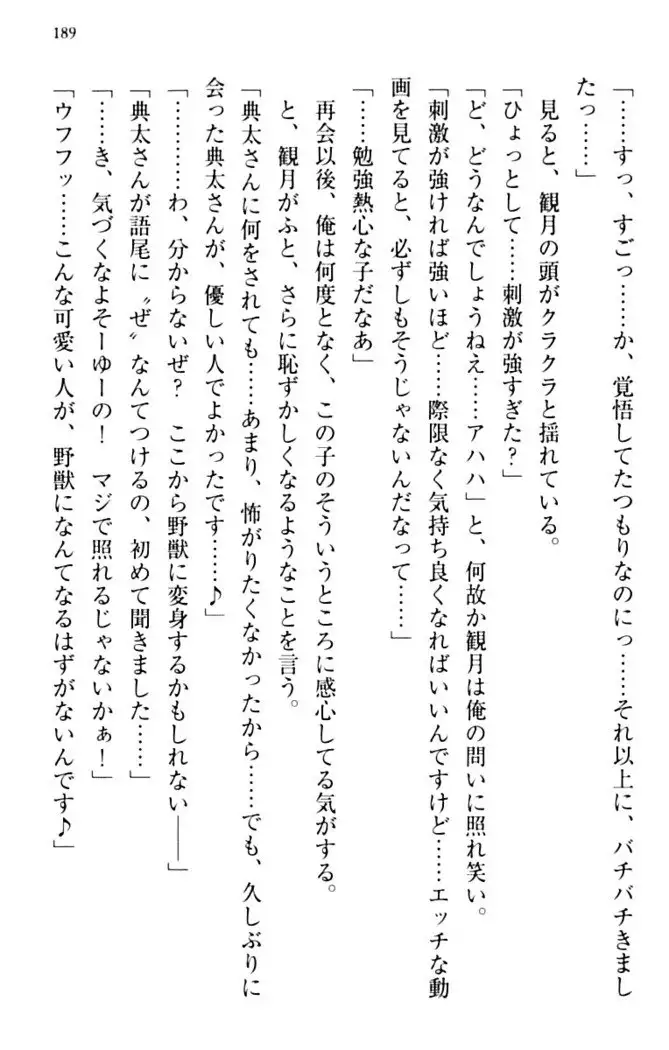 189
「……すっ、すごっ……か、覚悟してたつもりなのにっ……それ以上に、バチバチきまし
たっ……」
見ると、観月の頭がクラクラと揺れている。
「ひょっとして……刺激が強すぎた?」
「ど、どうなんでしょうねえ……アハハ」と、何故か観月は俺の問いに照れ笑い。
「刺激が強ければ強いほど……際限なく気持ち良くなればいいんですけど……エッチな動
画を見てると、必ずしもそうじゃないんだなって……」
「……勉強熱心な子だなあ」
再会以後、俺は何度となく、この子のそういうところに感心してる気がする。
と、観月がふと、さらに恥ずかしくなるようなことを言う。
「典太さんに何をされても……あまり、怖がりたくなかったから……でも、久しぶりに
会った典太さんが、優しい人でよかったです……♪」
「…………わ、分からないぜ? ここから野獣に変身するかもしれない――」
「典太さんが語尾に〝ぜ〟なんてつけるの、初めて聞きました……」
「……き、気づくなよそーゆーの! マジで照れるじゃないかぁ!」
「ウフフッ……こんな可愛い人が、野獣になんてなるはずがないんです♪」